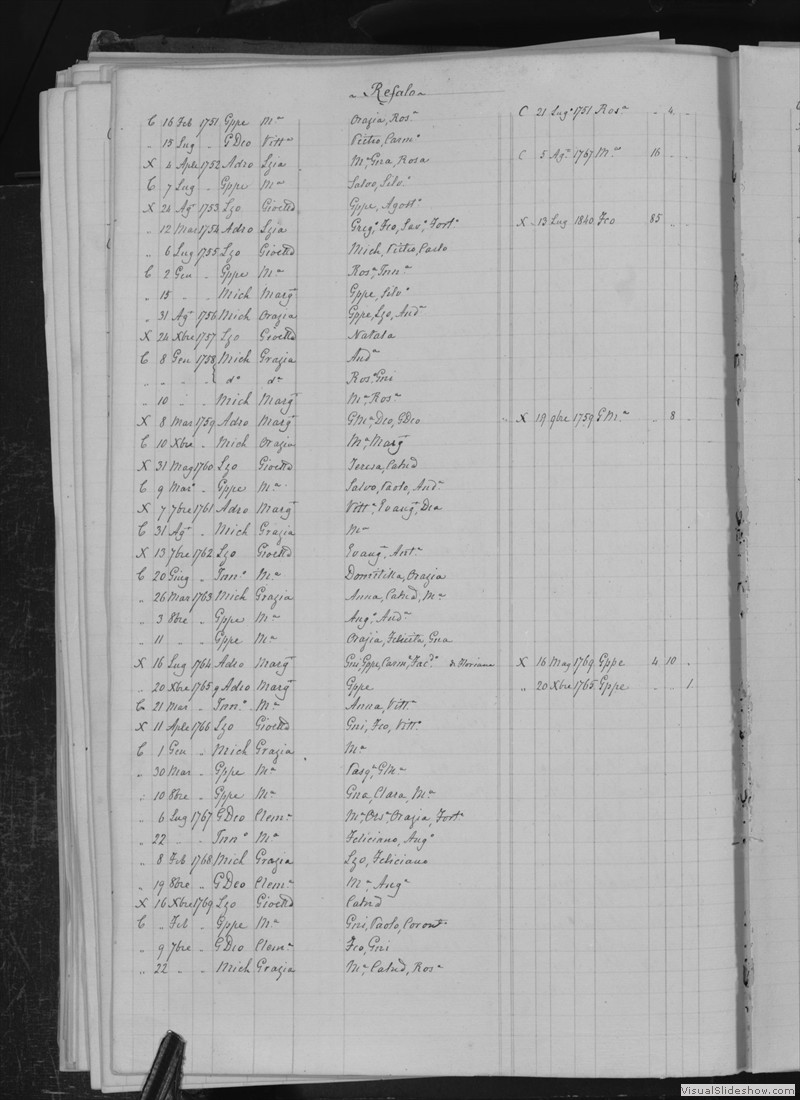 Refalo
C 16 Feb 1751 Gppe Mª Orazia, Rosª C 21 Lugº 1751 Rosª " 4 "
" 15 Lug " GDeo Vittª Pietro, Carmº
X 4 Aple 1752 Adeo Lzia Mª Gna, Rosa C 5 Agº 1767 Mª 16 " "
C 7 Lug " Gppe Mª Salvo, Silvº
X 24 Agº 1753 Lzo Gioetta Gppe, Agostº
" 12 Mar 1754 Adeo Lzia Gregº, Fco, Savº, Fortº X 13 Lug 1840 Fco 85 " "
" 6 Lug 1755 Lzo Gioetta Mich, Pietro, Carlo
C 2 Gen " Gppe Mª Rosª, Innª
" 15 " " Mich Margª Gppe, Silvº
" 31 Agº 1756 Mich Orazia Gppe, Lzo, Andª
X 24 Xbre 1757 Lzo Gioetta Natala
C 8 Gen 1758 Mich Grazia Andª
" " " " dº dº Rosª, Gni
" 10 " " Mich Margª Mª, Rosª
X 8 Mar 1759 Adeo Margª GMª, Deo, GDeo X 19 9bre 1759 GMª " 8 "
C 10 Xbre " Mich Orazia Mª, Margª
X 31 Mag 1760 Lzo Gioetta Teresa, Catnd
C 9 Marº " Gppe Mª Salvo, Paolo, Andª
X 7 7bre 1761 Adeo Margª Vittª, Evangª, Dea
C 31 Agº " Mich Grazia Mª
X 13 7bre 1762 Lzo Gioetta Evangª, Antª
C 20 Giug " Innº Mª Domitilla, Orazia
" 26 Mar 1763 Mich Grazia Anna, Catnd, Mª
" 3 8bre " Gppe Mª Angº, Andª
" 11 " " Gppe Mª Orazia, Felicita, Gna
X 16 Lug 1764 Adeo Margª Gni, Gppe, Carmº, Facº X 16 Mag 1769 Gppe 4 10 "
" 20 Xbre 1765 Adeo Margª Gppe " 20 Xbre 1765 Gppe " " 1
C 21 Mar " Innº Mª Anna, Vittª
X 11 Aple 1766 Lzo Gioetta Gni, Fco, Vittº
C 1 Gen " Mich Grazia Mª
" 30 Mar " Gppe Mª Pasqª, GMª
" 10 8bre " Gppe Mª Gna, Clara, Mª
" 6 Lug 1767 GDeo Clemª Mª, Orsª, Orazia, Fortª
" 22 " " Innº Mª Feliciano, Angº
" 8 Feb 1768 Mich Grazia Lzo, Feliciano
" 19 8bre " GDeo Clemª Mª, Angª
X 16 Xbre 1769 Lzo Gioetta Catnd
C " Feb " Gppe Mª Gni, Paolo, Coronª
" 9 7bre " GDeo Clemª Fco, Gni
" 22 " " Mich Grazia Mª, Catnd, Rosª
VisualSlideshow.com